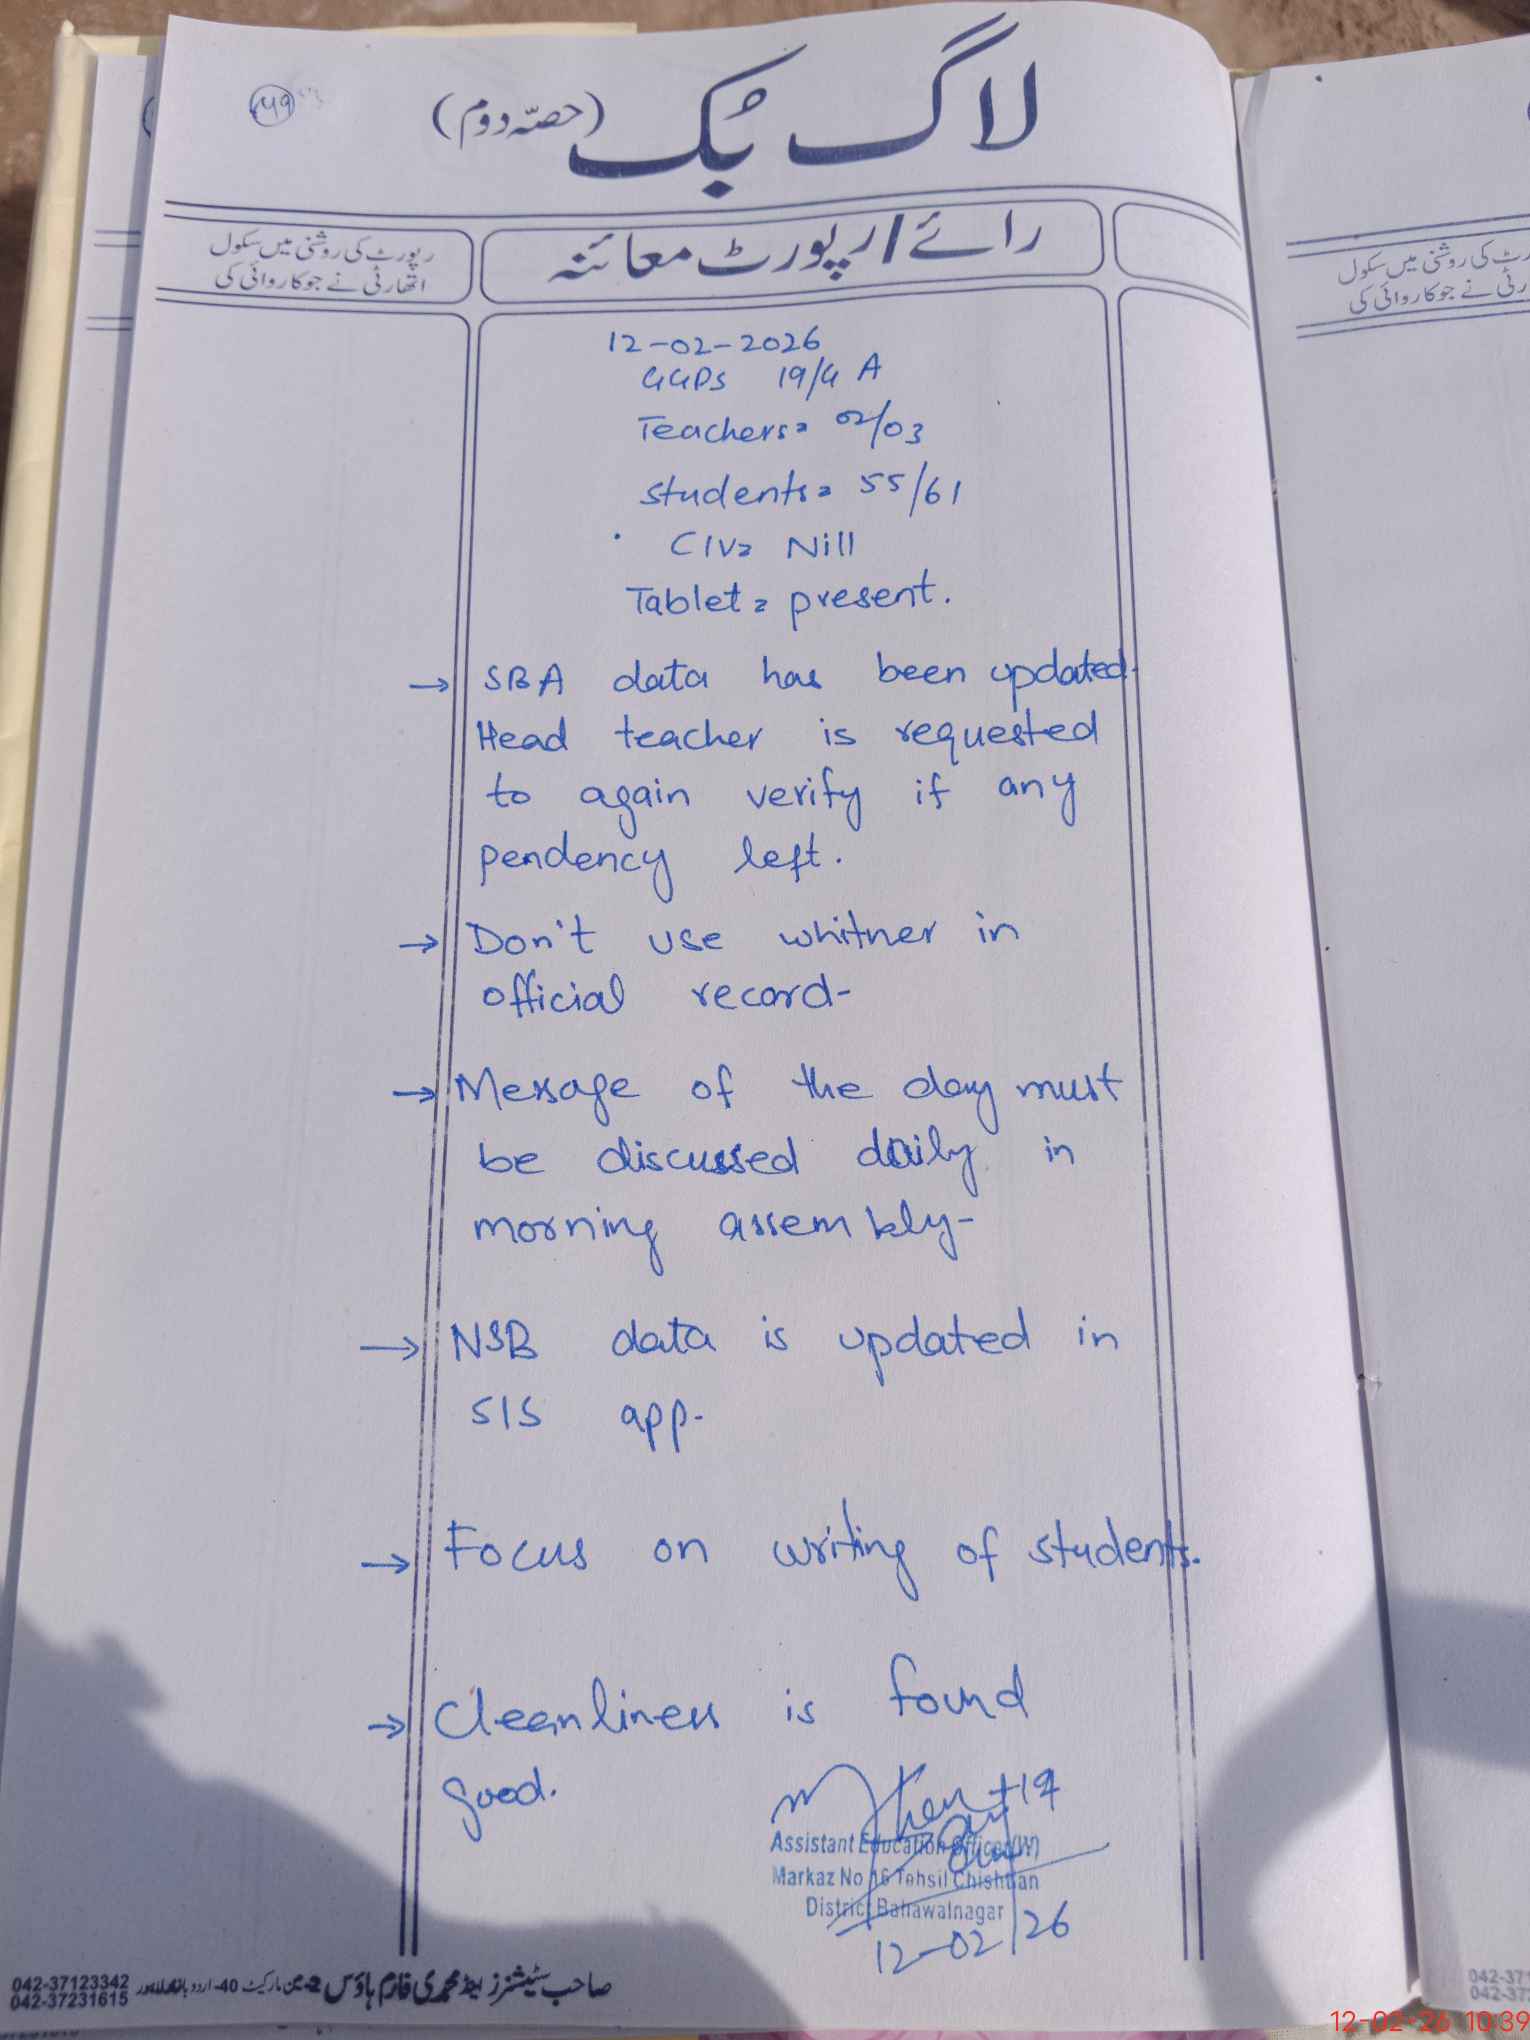 49
لاگ بک (حصّہ دوم)
رائے / رپورٹ معائنہ
رپورٹ کی روشنی میں سکول
اتھارٹی نے جو کاروائی کی
12-02-2026
GGPS 19/G A
Teachers= 02/03
Students= 55/61
CIV= Nill
Tablet= present.
→ SBA data has been updated.
Head teacher is requested
to again verify if any
pendency left.
→ Don't use whitner in
official record-
→ Message of the day must
be discussed daily in
morning assembly-
→ NSB data is updated in
SIS app-
→ Focus on writing of students.
→ Cleanliness is found
good.
Assistant Education Officer(W)
Markaz No 16 Tehsil Chishtian
District Bahawalnagar
12-02/26
صاحب سٹیشنرز اینڈ محمدی فارم ہاؤس
042-37123342
042-37231615
رپورٹ کی روشنی میں سکول
اتھارٹی نے جو کاروائی کی
042-371
042-372
12-02-26 10:39